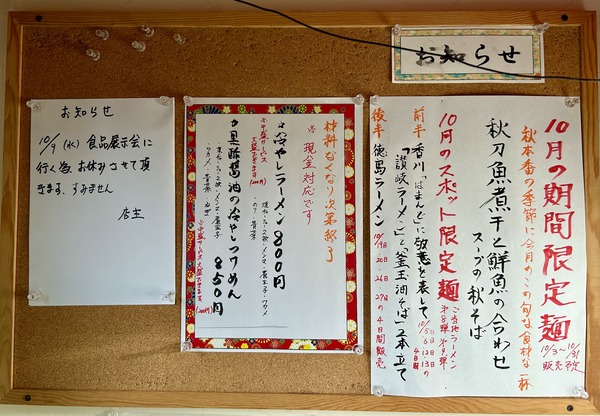 お知らせ
10月の期間限定麺
10/3〜10/31
販売予定
秋本番の季節に今月もこの旬な食材な一杯
秋刀魚煮干と鮮魚の合わせ
スープの秋そば
10月のスポット限定麺
ご当地ラーメン
第8弾 第9弾
前半 香川「はまんど」に敬意を表して
10/5日 6日 12日 13日の
4日間
「讃岐ラーメン」と「釜玉油そば」2本立て
後半 徳島ラーメン 10/19日・20日・26日・27日の4日間販売
材料なくなり次第終了
※現金対応です
冷やしラーメン 800円
黒酢醤油の冷やしつけめん 850円
お知らせ
10/9 (水) 食品展示会に
行く為 お休みさせて頂
きます、すみません
店主